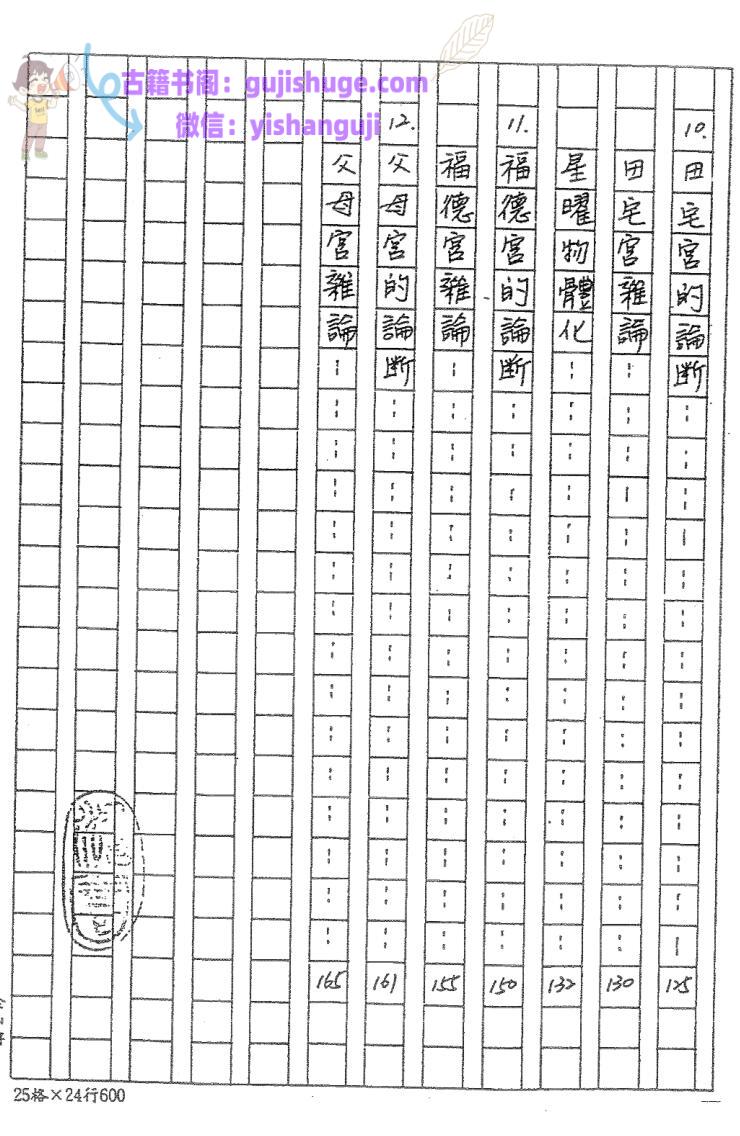 古籍书阁：gujishuge.com
微信：yishanguji
10. 田宅宮的論断……125
田宅宮雜論……130
星曜物體化……132
11. 福德宮的論断……150
福德宮雜論……155
12. 父母宮的論断……161
父母宮雜論……165
25格×24行600